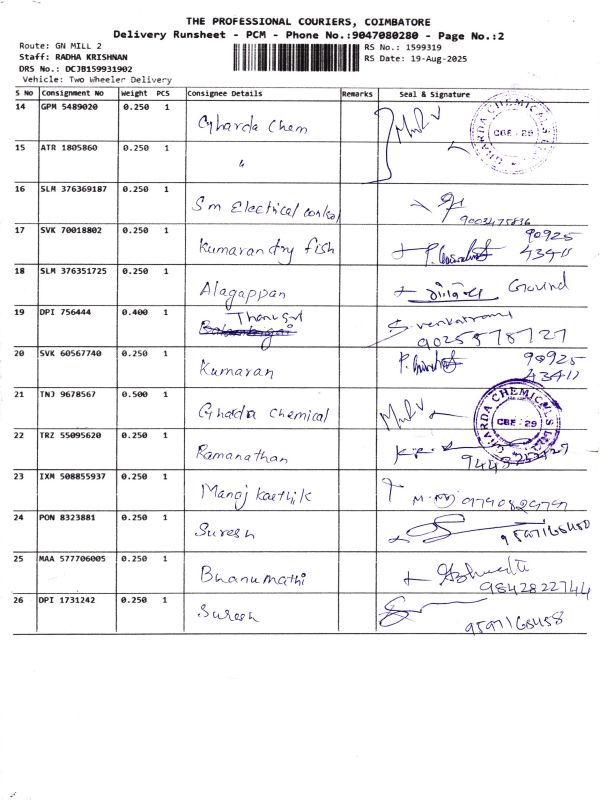 THE PROFESSIONAL COURIERS, COIMBATORE
Delivery Runsheet - PCM - Phone No.:9047080280 - Page No.:2
Route: GN MILL 2
RS No.: 1599319
Staff: RADHA KRISHNAN
RS Date: 19-Aug-2025
DRS No.: DCJB159931902
Vehicle: Two Wheeler Delivery
S No Consignment No Weight PCS Consignee Details Remarks Seal & Signature
14 GPM 5489020 0.250 1 Gharda Chem
GHARDA CHEMICALS CBE - 29
15 ATR 1805860 0.250 1 "
16 SLM 376369187 0.250 1 Sm Electrical control 9003475836
17 SVK 70018802 0.250 1 Kumaran dry fish 90925
43411
18 SLM 376351725 0.250 1 Alagappan Ground
19 DPI 756444 0.400 1 Thangsri S. Venkatramy
9025878727
20 SVK 60567740 0.250 1 Kumaran 90925
43411
21 TNJ 9678567 0.500 1 Gharda Chemical
GHARDA CHEMICALS LTD. CBE - 29
22 TRZ 55095620 0.250 1 Ramanathan
23 IXM 508855937 0.250 1 Manoj Karthik
24 PON 8323881 0.250 1 Suresh
25 MAA 577706005 0.250 1 Bhanumathi
9842822744
26 DPI 1731242 0.250 1 Suresh
9597168458